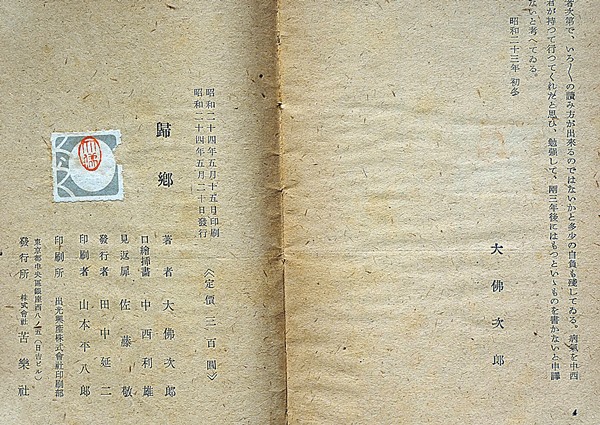 者次第で、いろ〱の讀み方が出來るのではないかと多少の自負も殘してゐる。病氣を中西
君が持つて行つてくれたと思ひ、勉強して、剛三年後にはもつといゝものを書かないと申譯
ないと考へてゐる。
昭和二十三年 初冬
大佛次郎
昭和二十四年五月十五日印刷
昭和二十四年五月二十日發行
《定價 三百圓》
歸鄕
著者 大佛次郎
口繪挿畫 中西利雄
見返扉 佐藤敬
發行者 田中延二
印刷者 山本平八郎
印刷所 出光興產株式會社印刷部
東京都中央區銀座西八ノ五(日吉ビル)
發行所 株式會社 苦樂社